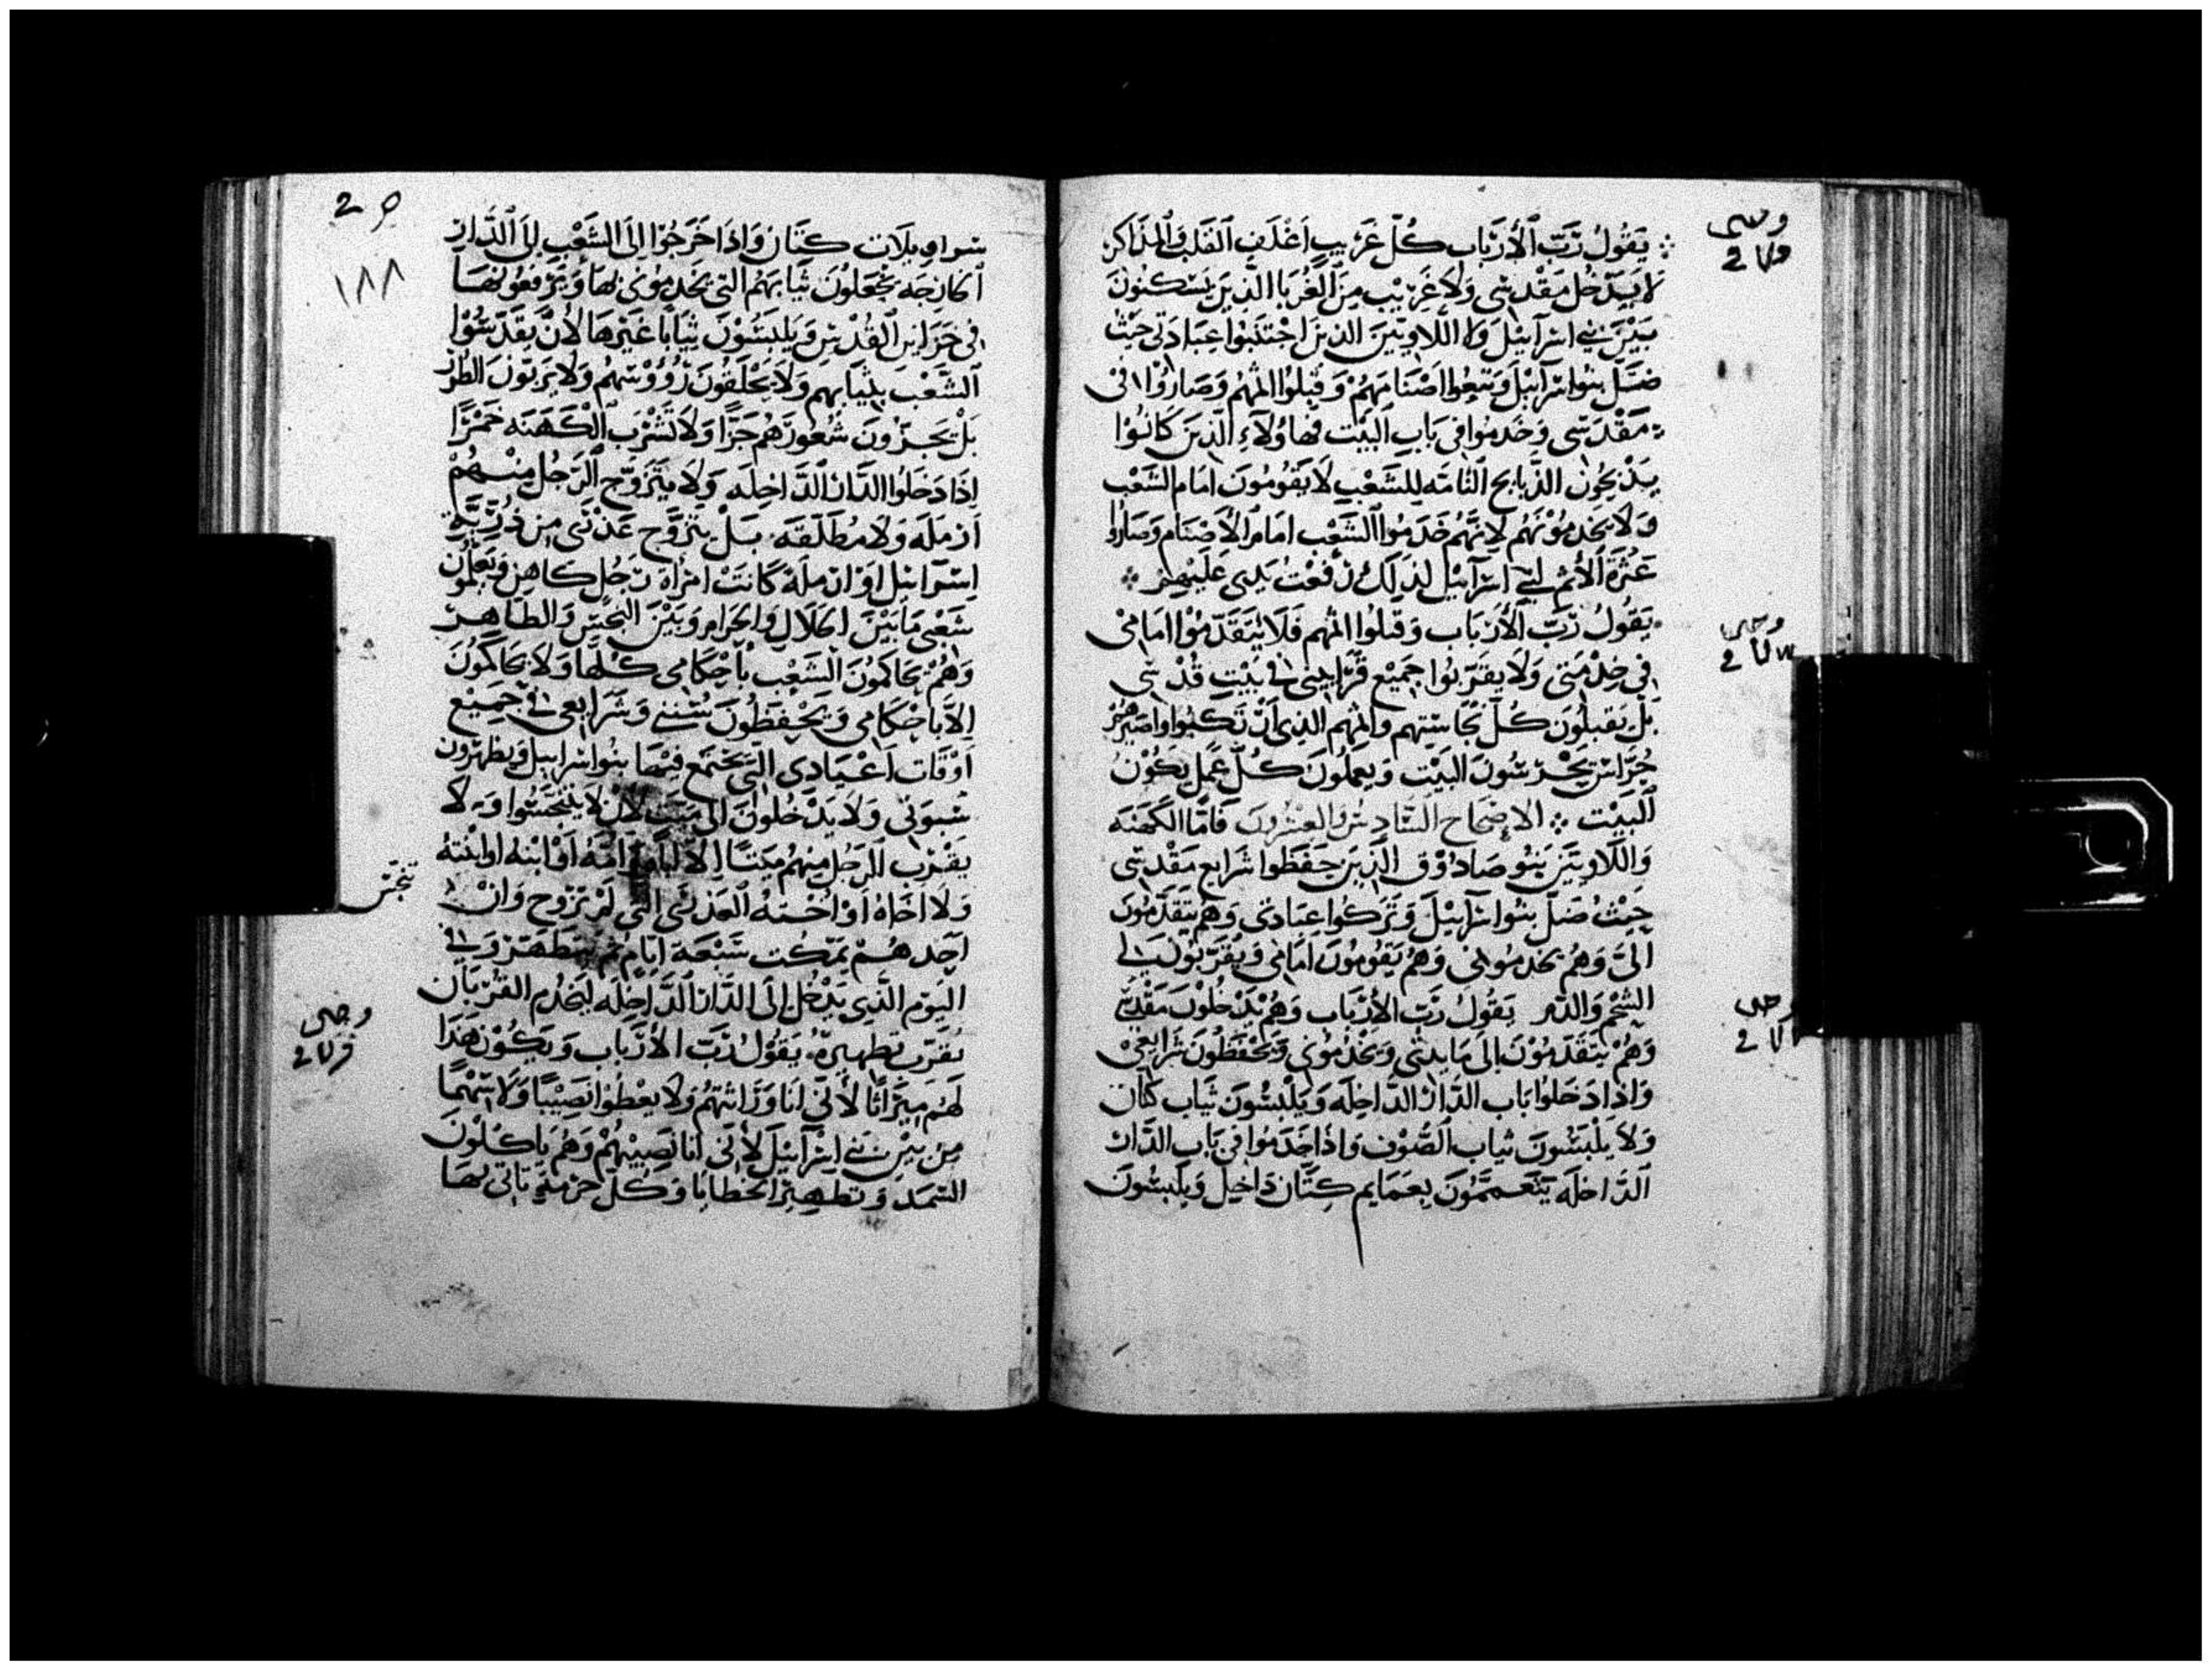 يَقُولُ رَبّ الأرْبَاب كُلّ غَرِيبٍ اَغْلَفِ القَلْب وَالمذَاكر
لَا يَدْخُل مَقْدسى وَلَا غَرِيْب مِنَ الغُرَبَا الذِينَ يَسْكنُونَ
بَيْنَ بَنى اسْرَآئيْل وَلا اللاويّينَ الذينَ اجْتَنَبُوا عِبَادَتى حَيْثُ
ضَلّ بنُوا اسْرَآئيْلَ وَتبَعُوا اَصْنَامَهُمْ وَقبلُوا اثمهُم وَصَارُوا فى
مَقْدَسى وَخَدمُوا فى بَابِ البَيْت فهَاوُلآءِ الَّذِينَ كَانُوْا
يَذْبَحُون الذَّبايح التَّامَّه لِلشَعْبِ لَا يَقُومُونَ اَمَام الشَعْب
وَلَا يخدمُوْنَهُم لِانَّهُم خَدَمُوا الشَعْب امَام الأَصْنَام وَصَارُوا
عَثْرَة الأثم لبَنى اسْرَآئيْل لذلك رَفَعْتُ يَدى عَلَيْهمْ
يَقُولُ رَبّ الأرْبَاب وَقبلُوا اثمهم فَلَا يَتَقَدّمُوْا امَامى
فى خِدْمَتى وَلَا يقَرّبُوا جَميْع قَرَابينى فى بَيْتِ قُدْسى
بَل يَقبلُون كُلّ نجَاسَتِهم واثمهم الذِى ارْتَكَبُوا وَاصَيرهُمْ
حُرّاسًا يحْرسُونَ البَيْت وَيَعمَلُونَ كُلّ عَمَلٍ يَكُوْنُ
البَيْت الاصْحَاح السَّادِسُ وَالعِشْرُونَ فَامّا الكَهَنَه
وَاللاويّيْنَ بَنُو صَادُوْق الَّذِينَ حَفَظُوا شَرَايع مَقْدسى
حَيْثُ ضَلّ بنُوا اسْرَآئيْلَ وَتَرَكُوا عِبَادتى وَهُمْ يَتَقَدّمُونَ
الىَّ وَهُمْ يخدمُونى وَهُمْ يَقُومُونَ اَمَامى وَيُقَرّبُونَ لى
الشَّحم وَالدَّم يَقُولُ رَبّ الأرْبَاب وَهُمْ يَدْخُلُوْنَ مَقْدسى
وَهُمْ يَتَقَدّمُوْنَ الى مَايدتى وَيَخْدمُونى وَيَحْفظُونَ شَرَايعىْ
وَاذا دَخَلوا بَاب الدَّار الدَّاخِلَه وَيَلْبسُونَ ثيَاب كتّان
وَلَا يَلْبَسُونَ ثيَاب الصُّوْف وَاذا خَدَمُوا فى بَابِ الدَّار
الدَّاخلَه يَتَعَممُونَ بعَمَايم كِتَّان دَاخِل وَيلبسُونَ
وحى
2
وحى
2
وحى
2
2
١٨٨
سَرَاويلَات كتّان وَاذا خَرَجُوا اِلَى الشَعْب الى الدَّار
الخارجَه يجْعَلُونَ ثيَابَهُم التى يَخدمُونى بهَا وَيَرْفعُونهَا
فى خَزَاين القُدْس وَيَلبسُوْنَ ثيَابًا غَيْرهَا لأن يقَدّسُوْا
الشَّعْب بثيَابهم وَلَا يَحْلَقُونَ رُؤُوْسهُم وَلَا يَربّون الطُرَر
بَلْ يجزّونَ شُعُورَهُم جَزًّا وَلَا تَشْرَب الكَهَنَه خَمْرًا
اِذَا دَخَلُوا الدَّار الدَّاخِلَه وَلَا يَتَزَوّج الرّجُل مِنْهُمْ
ارْمَلَه وَلَا مُطَلّقَه بَلْ يتزوَّج عَذْرَى مِن ذُرّيّة
اِسْرَآئيل اوْ ارْملَة كَانَتْ امْرَاة رَجُل كَاهِن وَيَعَلّمُون
شَعْبى مَا بَيْنَ الحَلَالِ وَالحَرَام وَبَيْنَ النَجَس وَالطَاهِر
وَهُمْ يحَاكمُونَ الشَعْب بأحْكَامى كُلّهَا وَلَا يحَاكمُونَ
الّا باحْكَامى وَيَحْفظُونَ سُنَنى وَشَرَايعى فى جَميْع
اَوْقَات اَعْيَادى التى يجتمع فيْهَا بنُوا اسْرَاييل وَيطهرُون
سُبوتى وَلَا يَدْخُلُونَ الى مَيّت لان لَا يتنَجّسُوا وَلَا
يقْرب الرّجُل منهُم مَيّتًا الّا لِابيهِ امّهُ اَوْ ابْنه او ابْنتهُ
وَلَا اخَاهُ اَوْ اُخْتهُ العَذرَى التى لَمْ تزوّج وَان
احَدهُمْ يمكث سَبْعَة ايّام ثم يتَطهّر وَفى
اليَوْم الَّذِى يَدْخُل اِلَى الدَّار الدَّاخِلَه لِيَخْدُم القُرْبَان
يُقرّب تطهيرهُ يَقُولُ رَبّ الأرْبَاب وَيَكُوْن هَذَا
لَهُم مِيْرَاثًا لأَنّى انَا وَرَاثتهُم وَلَا يعْطوْا نَصِيْبًا وَلَا سَهْمًا
مِن بَيْن بَنى اِسْرَآئيْل لأنّى انا نَصِيْبهُمْ وَهُم يَاكلُونَ
السّمَد وَتطهِيْر الخطايا وَكُلّ حَرَمة تاتى بهَا
تنجّس
وحى
2